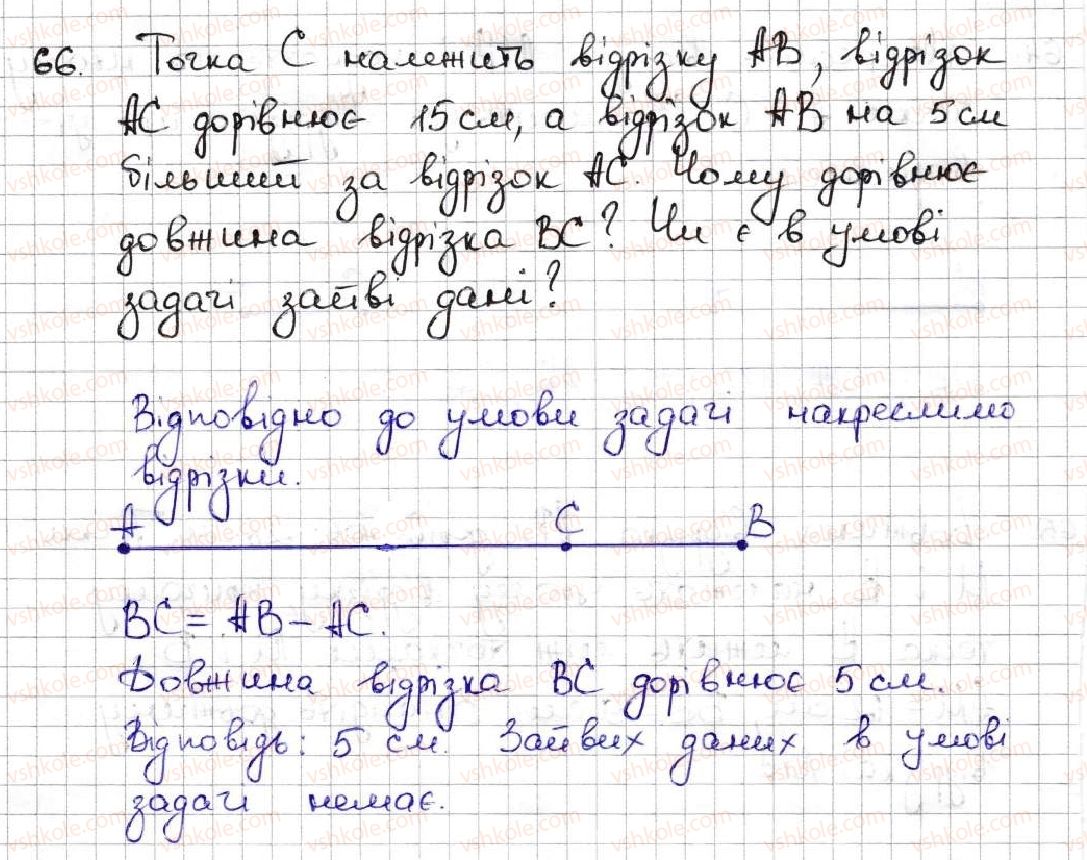 66. Точка C належить відрізку AB, відрізок
AC дорівнює 15 см, а відрізок AB на 5 см
більший за відрізок AC. Чому дорівнює
довжина відрізка BC? Чи є в умові
задачі зайві дані?
Відповідно до умови задачі накреслимо
відрізки.
A C B
BC = AB - AC.
Довжина відрізка BC дорівнює 5 см.
Відповідь: 5 см. Зайвих даних в умові
задачі немає.